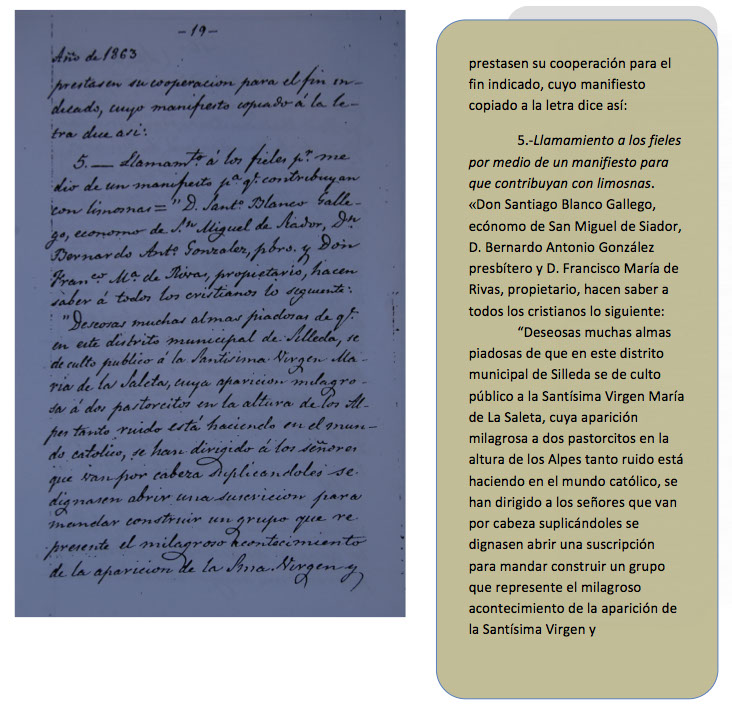 -19-
Año de 1863
prestasen su cooperacion para el fin in-
dicado, cuyo manifiesto copiado á la le-
tra dice asi:
5.— Llamamto á los fieles pr. me
dio de un manifesto pa. qe. contribuyan
con limosnas= "D. Santo. Blanco Galle-
go, economo de Sn. Miguel de Siador, Dn.
Bernardo Anto. Gonzalez, pbro. y Don
Franco. Ma. de Rivas, propietario, hacen
saber á todos los cristianos lo seguiente:
"Deseosas muchas almas piadosas de qe.
en este distrito municipal de Silleda, se
de culto publico á la Santisima Virgen Ma-
ria de la Saleta, cuya aparicion milagro-
sa á dos pastorcitos en la altura de los Al-
pes tanto ruido está haciendo en el mun-
do catolico, se han dirigido á los señores
que van por cabeza suplicandoles se
dignasen abrir una suscricion para
mandar construir un grupo que re
presente el milagroso acontecimiento
de la aparicion de la Sma. Virgen y
prestasen su cooperación para el
fin indicado, cuyo manifiesto
copiado a la letra dice así:
5.-Llamamiento a los fieles
por medio de un manifiesto para
que contribuyan con limosnas.
«Don Santiago Blanco Gallego,
ecónomo de San Miguel de Siador,
D. Bernardo Antonio González
presbítero y D. Francisco María de
Rivas, propietario, hacen saber a
todos los cristianos lo siguiente:
"Deseosas muchas almas
piadosas de que en este distrito
municipal de Silleda se de culto
público a la Santísima Virgen María
de La Saleta, cuya aparición
milagrosa a dos pastorcitos en la
altura de los Alpes tanto ruido está
haciendo en el mundo católico, se
han dirigido a los señores que van
por cabeza suplicándoles se
dignasen abrir una suscripción
para mandar construir un grupo
que represente el milagroso
acontecimiento de la aparición de
la Santísima Virgen y